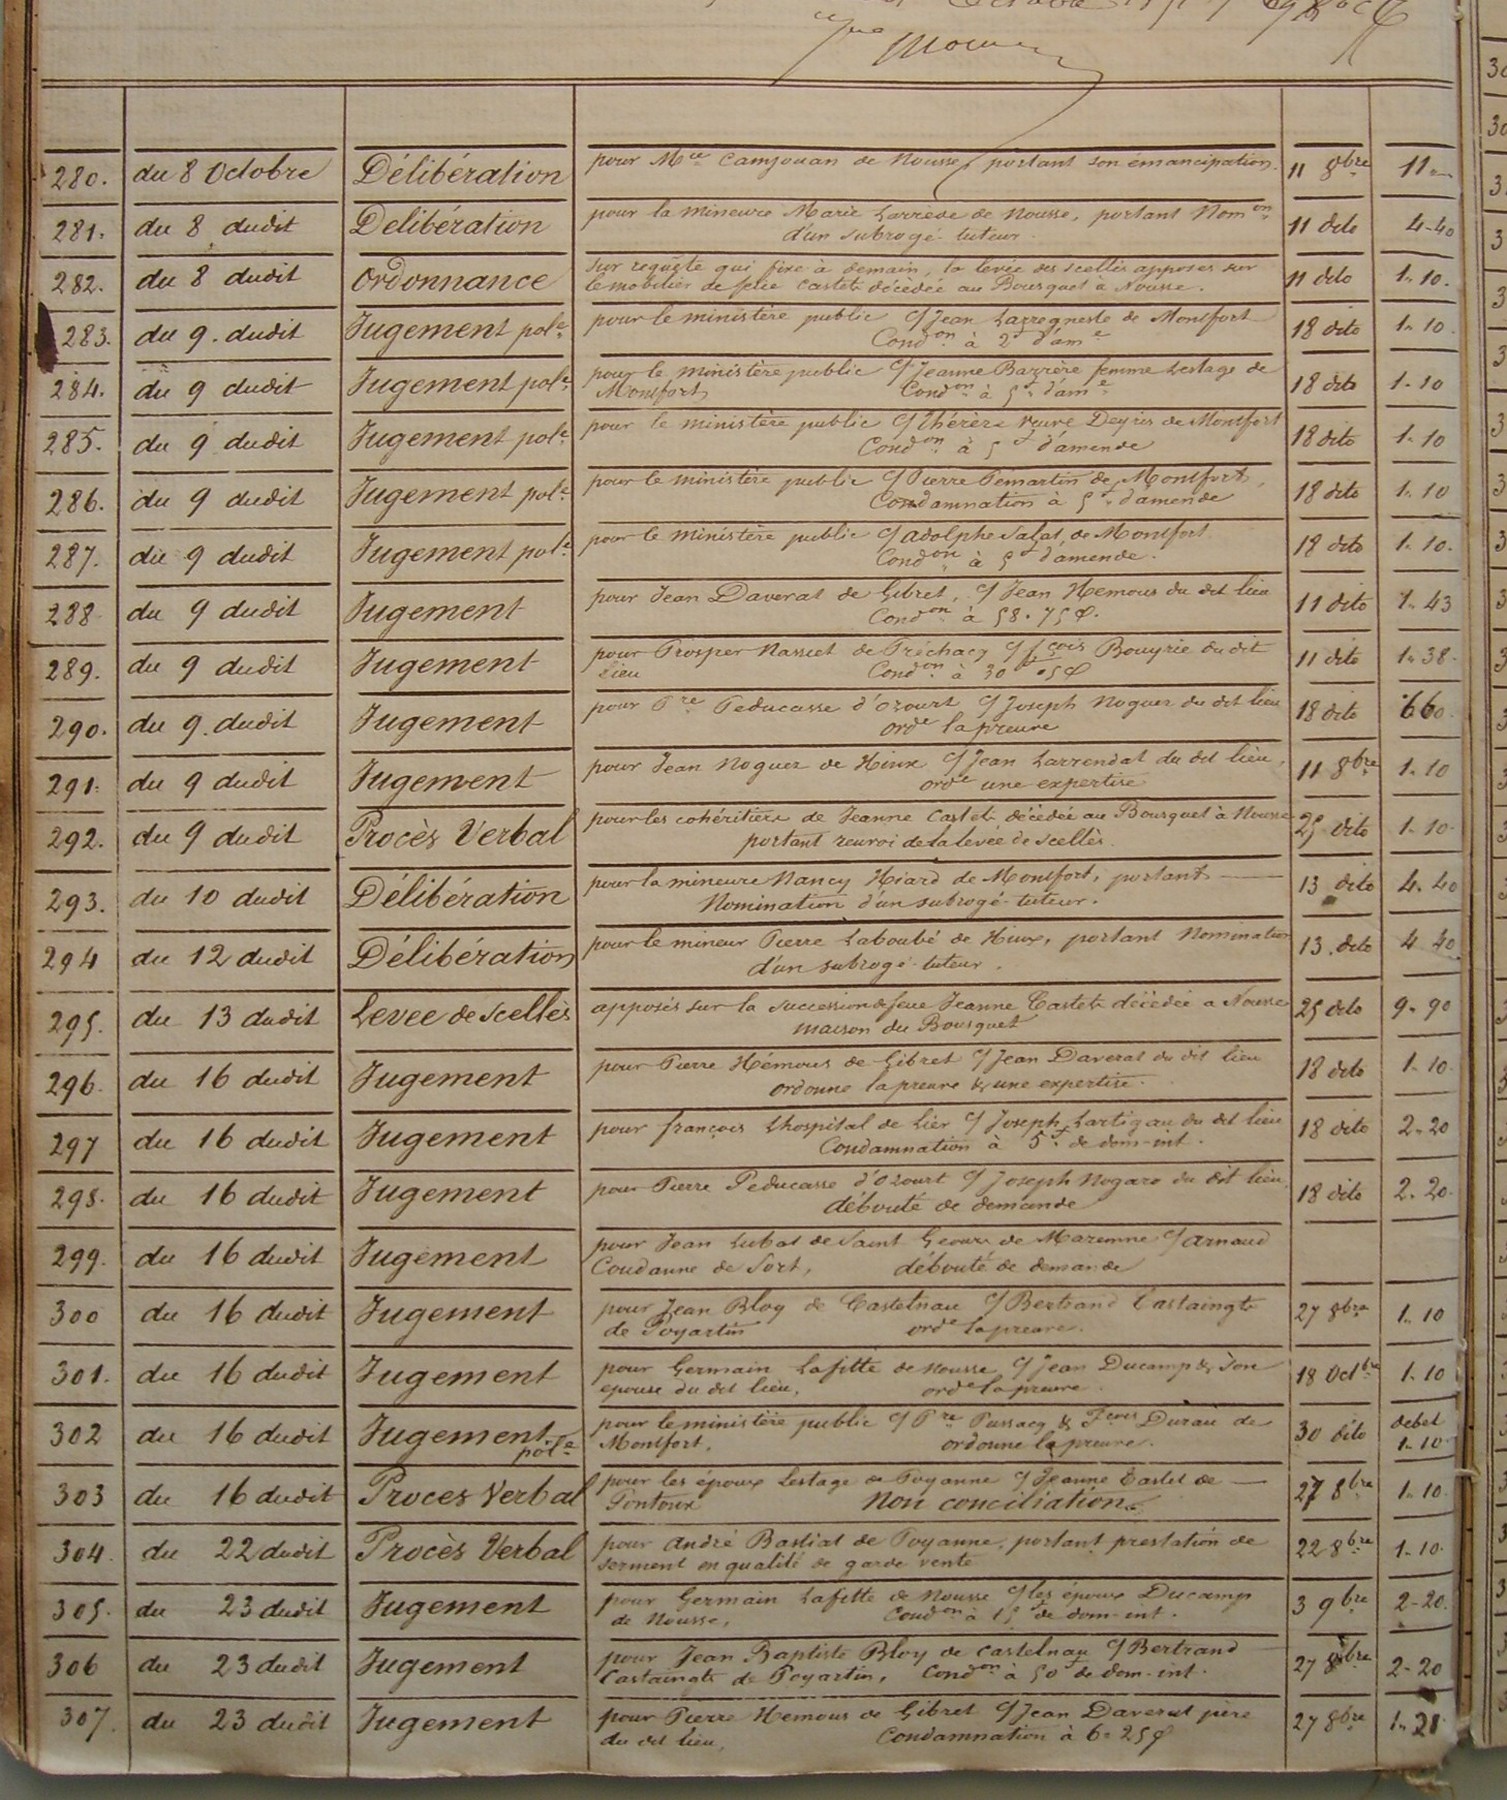 280. du 8 Octobre Délibération pour Mce Camjouan de Nousse, portant son émancipation. 11 8bre 11 "
281. du 8 dudit Delibération pour la mineure Marie Larrède de Nousse, portant Nomon
d'un subrogé-tuteur. 11 dito 4-40
282. du 8 dudit Ordonnance sur requête qui fixe à demain, la levée des scellés apposés sur
le mobilier de feue Castets décédée au Bousquet à Nousse. 11 dito 1-10.
283. du 9 dudit Jugement pole pour le ministère public c/ Jean Larregneste de Montfort
Condon à 2f d'ame 18 dito 1-10
284. du 9 dudit Jugement pole pour le ministère public c/ Jeanne Barrère femme Lestage de
Montfort Condon à 5f d'ame 18 dito 1-10
285. du 9 dudit Jugement pole pour le ministère public c/ Thérèse veuve Deyris de Montfort
Condon à 5f d'amende 18 dito 1-10
286. du 9 dudit Jugement pole pour le ministère public c/ Pierre Témartin de Montfort,
Condamnation à 5f d'amende 18 dito 1-10
287. du 9 dudit Jugement pole pour le ministère public c/ adolphe Salat de Montfort
Condon à 5f d'amende. 18 dito 1-10.
288 du 9 dudit Jugement pour Jean Daverat de Gibret, c/ Jean Hemous du dit lieu
Condon à 58.75 c. 11 dito 1-43
289. du 9 dudit Jugement pour Prosper Nassiet de Préchacq c/ fçois Bouyrie du dit
lieu Condon à 30f 05c 11 dito 1-38-
290. du 9 dudit Jugement pour Pre Peducasse d'Ozourt c/ Joseph Noguez du dit lieu
orde la preuve 18 dito 660
291. du 9 dudit Jugement pour Jean Noguez de Hinx c/ Jean Larrendat du dit lieu,
orde une expertise 11 8bre 1-10
292. du 9 dudit Procès Verbal pour les cohéritiers de Jeanne Castets décédée au Bousquet à Nousse
portant renvoi de la levée de scellés. 25 dito 1-10
293. du 10 dudit Délibération pour la mineure Nancy Hiard de Montfort, portant
Nomination d'un subrogé-tuteur. 13 dito 4-40
294 du 12 dudit Délibération pour le mineur Pierre Laboubé de Hinx, portant Nomination
d'un subrogé-tuteur. 13 dito 4 40
295. du 13 dudit Levee de Scellés apposés sur la succession de feue Jeanne Castets décédée a Nousse
maison du Bousquet 25 dito 9-90
296. du 16 dudit Jugement pour Pierre Hémous de Gibret c/ Jean Daverat du dit lieu
ordonne la preuve & une expertise. 18 dito 1-10
297 du 16 dudit Jugement pour françois Lhospital de Lier c/ Joseph Lartigau du dit lieu
Condamnation à 5f de dom-int. 18 dito 2-20
298. du 16 dudit Jugement pour Pierre Peducasse d'Ozourt c/ Joseph Nogaro du dit lieu,
débouté de demande 18 dito 2-20
299. du 16 dudit Jugement pour Jean Lubat de Saint Geours de Maremne c/ Arnaud
Coudanne de Sort, débouté de demande
300 du 16 dudit Jugement pour Jean Bloy de Castelnau c/ Bertrand Castaingts
de Poyartin orde la preuve. 27 8bre 1-10
301. du 16 dudit Jugement pour Germain Lafitte de Nousse c/ Jean Ducamp & son
epouse du dit lieu, orde la preuve. 18 Octbre 1-10
302 du 16 dudit Jugement pole pour le ministère public c/ Pre Passacq & Fçois Durau de
Montfort, ordonne la preuve. 30 dito debet 1-10
303 du 16 dudit Proces Verbal pour les époux Lestage de Poyanne c/ Jeanne Castet de
Pontoux Non conciliation 27 8bre 1-10
304. du 22 dudit Procès Verbal pour André Bastiat de Poyanne, portant prestation de
serment en qualité de garde vente 22 8bre 1-10.
305. du 23 dudit Jugement pour Germain Lafitte de Nousse c/ les époux Ducamp
de Nousse, Condon à 15f de dom-int. 3 9bre 2-20.
306 du 23 dudit Jugement pour Jean Baptiste Bloy de Castelnau c/ Bertrand
Castaingts de Poyartin, Condon à 50f de dom-int. 27 8bre 2-20
307. du 23 dudit Jugement pour Pierre Hemous de Gibret c/ Jean Daverat père
du dit lieu, Condamnation à 6-25c 27 8bre 1-21